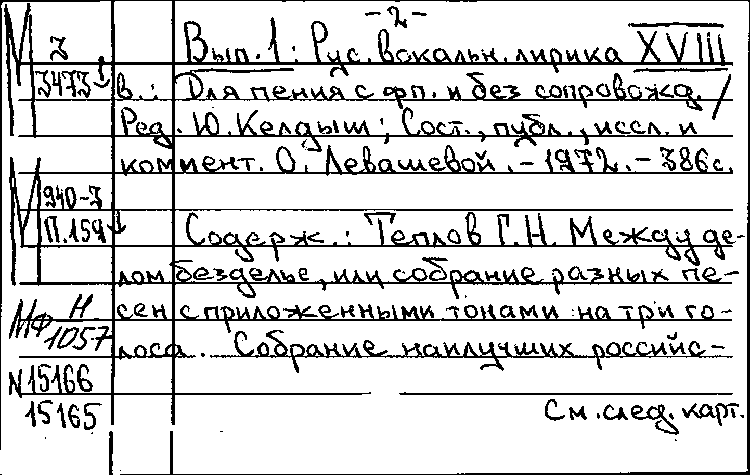 - 2 -
М З 3473-1 Вып. 1: Рус. вокальн. лирика XVIII
в.: Для пения с фп. и без сопровожд. /
Ред. Ю. Келдыш; Сост., публ., иссл. и
коммент. О. Левашевой. - 1972. - 386с.
М 940-3
П.159 Содерж.: Теплов Г.Н. Между де-
лом безделье, или собрание разных пе-
МФ Н 1057 сен с приложенными тонами на три го-
лоса. Собрание наилучших российс-
N 15166
15165 См. след. карт.